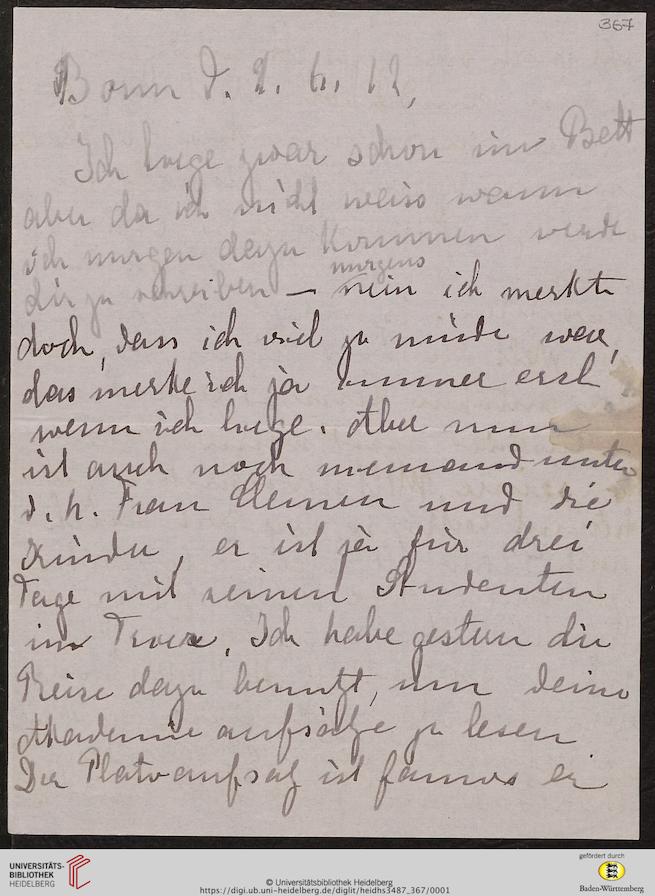 367
Bonn d. 2. 6. 12,
Ich liege zwar schon im Bett
aber da ich nicht weiss wann
ich morgen dazu kommen werde
dir zu schreiben – nein ich merkte
morgens
doch, dass ich viel zu müde war,
das merke ich ja immer erst
wenn ich liege. Aber nun
ist auch noch niemand unten
d. h. Frau Clemen und die
Kinder, er ist ja für drei
Tage mit seinen Studenten
in Trier. Ich habe gestern die
Reise dazu benutzt, um deine
Akademieaufsätze zu lesen
Der Platoaufsatz ist famos er
UNIVERSITÄTS-
BIBLIOTHEK
HEIDELBERG
© Universitätsbibliothek Heidelberg
https://digi.ub.uni-heidelberg.de/diglit/heidhs3487_367/0001
gefördert durch
Baden-Württemberg